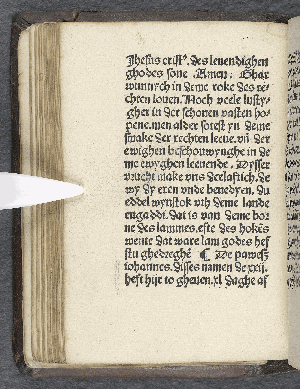 Jhesus crist⁹. des leuendighen
ghodes sone Amen: Ghar
in deme roke des re-
chten louen. Noch veele lusty-
gher in der schonen vasten ho-
pene. men alder sotest yn deme
smake der rechten leeue. vn̄ der
ewighen beschouwynghe in de
me ewyghen leeuende. Desser
vrucht make vns deelaftich. de
wy dy eren vnde benedyen. du
eddel wynstok vth deme lande
engaddi. dat is van deme bo
ne des lammes. efte des hokēs
wente dat ware lam godes hef
stu ghedreghē ¶ De pawes
iohannes. disses namen de xxij.
heft hijr to gheuen. xl daghe af